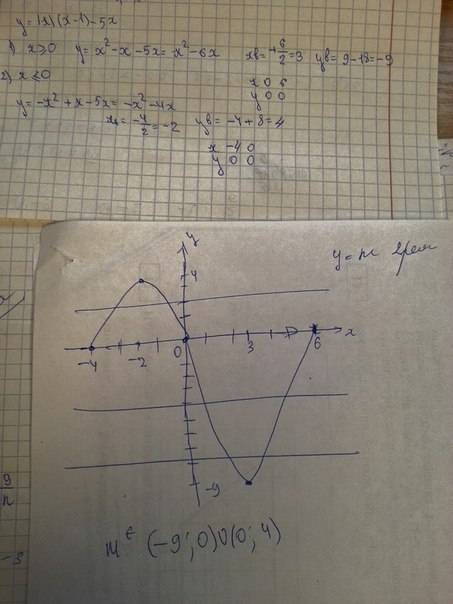 y=|x|(x-1)-5x
1) x≥0 y=x²-x-5x=x²-6x xв=+6/2=3 yв=9-18=-9
x 0 6
y 0 0
2) x≤0
y=-x²+x-5x=-x²-4x
xв=-4/2=-2 yв=-4+8=4
x -4 0
y 0 0
y
y=m
4
x
-4 -2 0 3 6
-9
m ∈ (-9;0)U(0;4)
9
-3